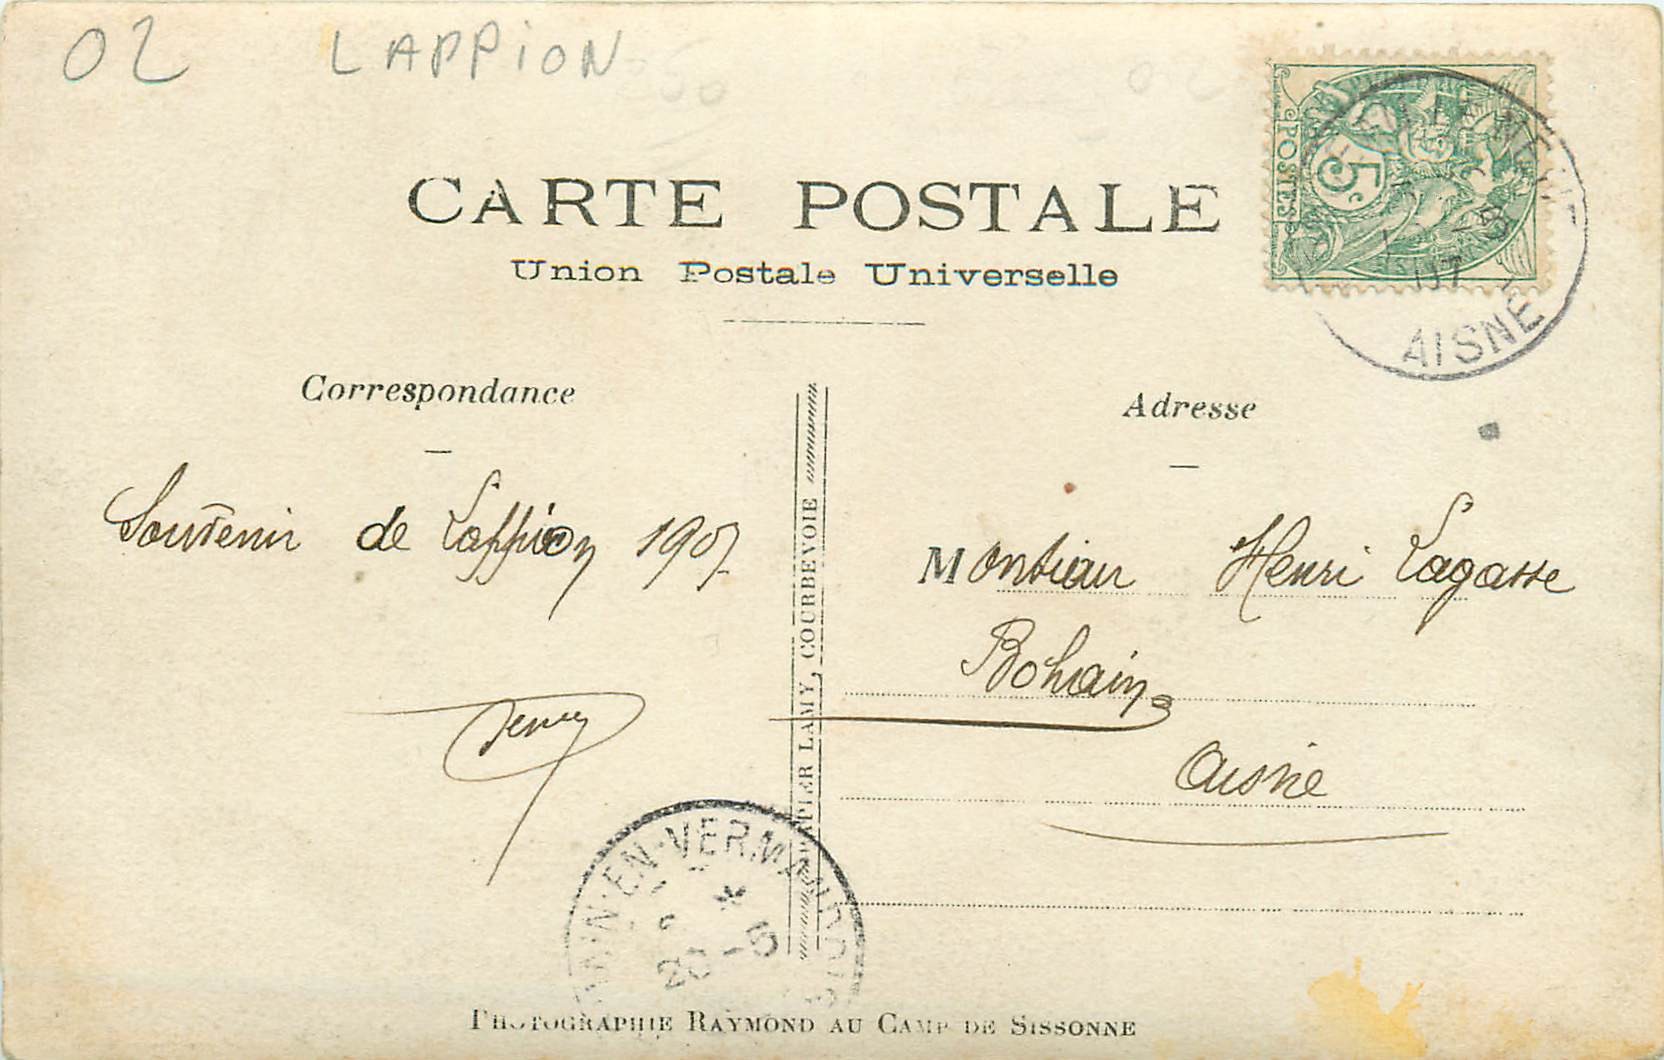 02 LAPPiON
CARTE POSTALE
Union Postale Universelle
POSTES 5c
07
AISNE
Correspondance
Adresse
Souvenir de Lappion 1907
Monsieur Henri Lagasse
Bohain
Aisne
LAMY, COURBEVOIE
EN-VERMANDOIS
PHOTOGRAPHIE RAYMOND AU CAMP DE SISSONNE